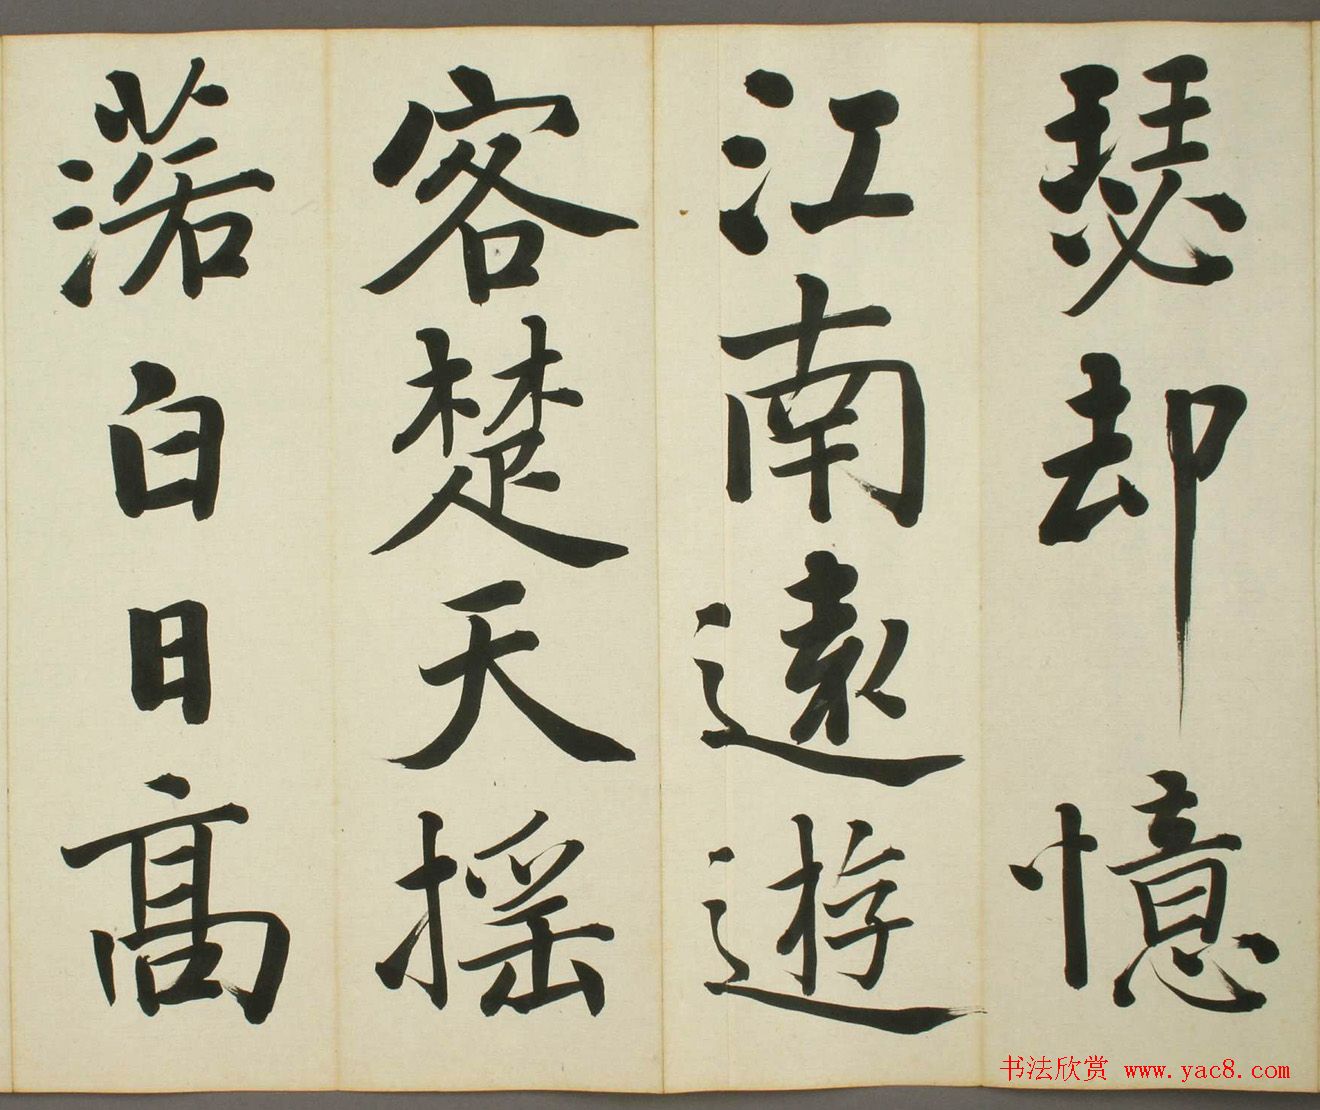 瑟却憶
江南遠遊
客楚天揺
落白日高
书法欣赏 www.yac8.com